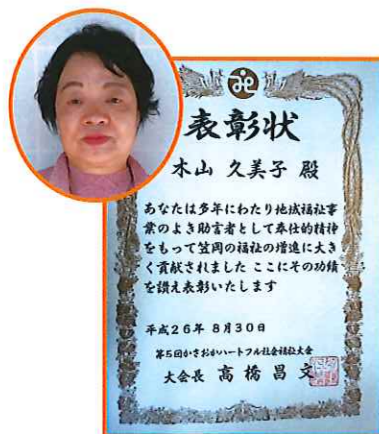 表彰状
木山 久美子 殿
あなたは多年にわたり地域福祉事
業のよき助言者として奉仕的精神
をもって笠岡の福祉の増進に大き
く貢献されました ここにその功績
を讃え表彰いたします
平成26年 8月30日
第5回かさおかハートフル社会福祉大会
大会長 高橋昌文